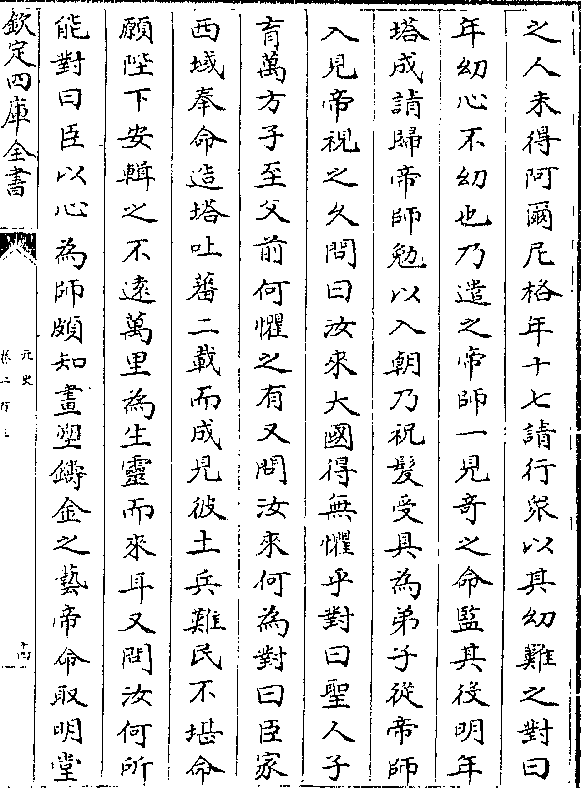 之人未得阿爾尼格年十七請行衆以其幼難之對曰
年幼心不幼也乃遣之帝師一見竒之命監其役明年
塔成請歸帝師勉以入朝乃祝髮受具為弟子從帝師
入見帝視之久問曰汝來大國得無懼乎對曰聖人子
育萬方子至父前何懼之有又問汝來何為對曰臣家
西域奉命造塔吐蕃二載而成見彼土兵難民不堪命
願陛下安輯之不逺萬里為生靈而來耳又問汝何所
能對曰臣以心為師頗知畫塑鑄金之藝帝命取明堂
欽定四庫全書
元史
十四